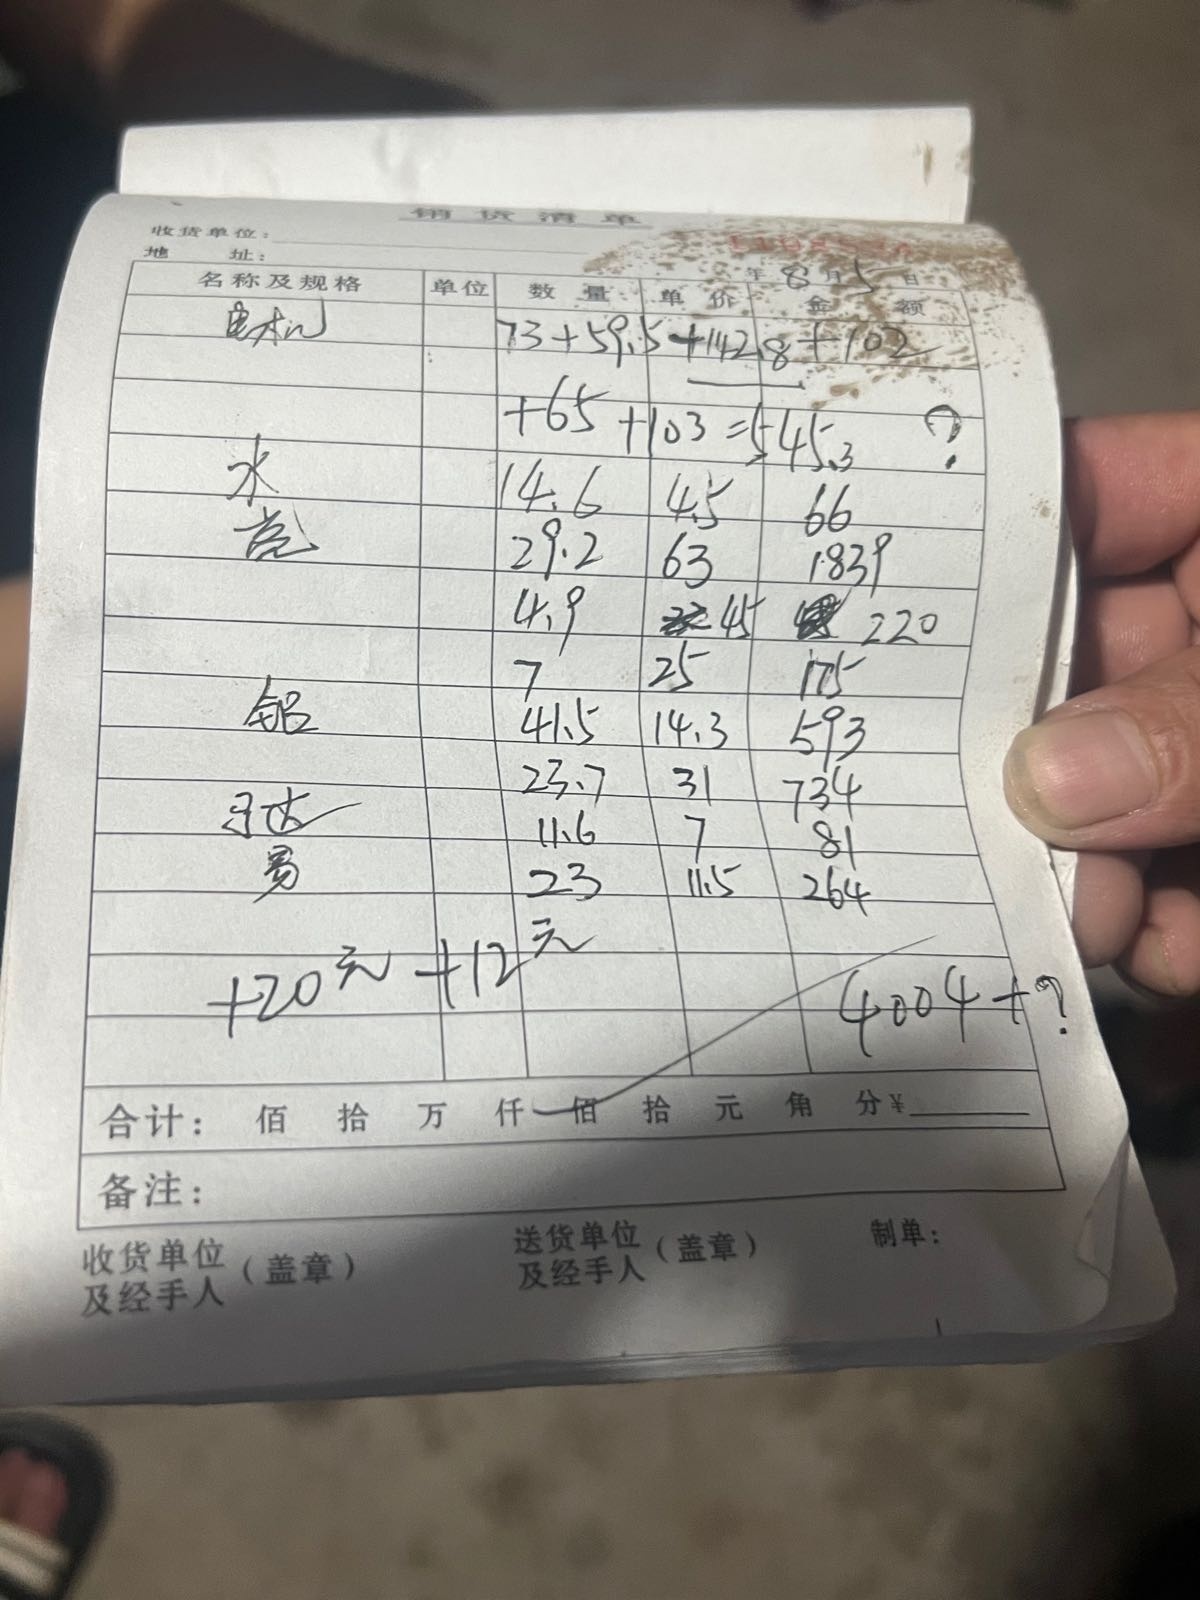 销货清单
收货单位:
地 址: 年 8 月 5 日
名称及规格 单位 数量 单价 金额
电机 73+59.5+142.8+102
+65+103=545.3 ?
水 14.6 4.5 66
亮 29.2 63 1839
4.9 45 220
7 25 175
铝 41.5 14.3 593
23.7 31 734
马达 11.6 7 81
23 11.5 264
+20元+12元
4004+?
合计: 佰 拾 万 仟 佰 拾 元 角 分¥
备注:
收货单位及经手人(盖章) 送货单位及经手人(盖章) 制单: